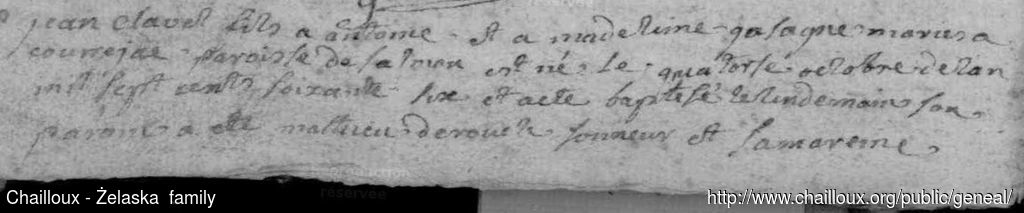 jean clavel fils a antoine et a madeleine gasagne maries a
courrejac paroisse de salmon est né le quatorse octobre delan
mil sept cents soixante six et a ete baptisé le lendemain son
parain a ete mathieu derouch sonneur et sa mareine
réservée
Chailloux - Żelaska family
http://www.chailloux.org/public/geneal/